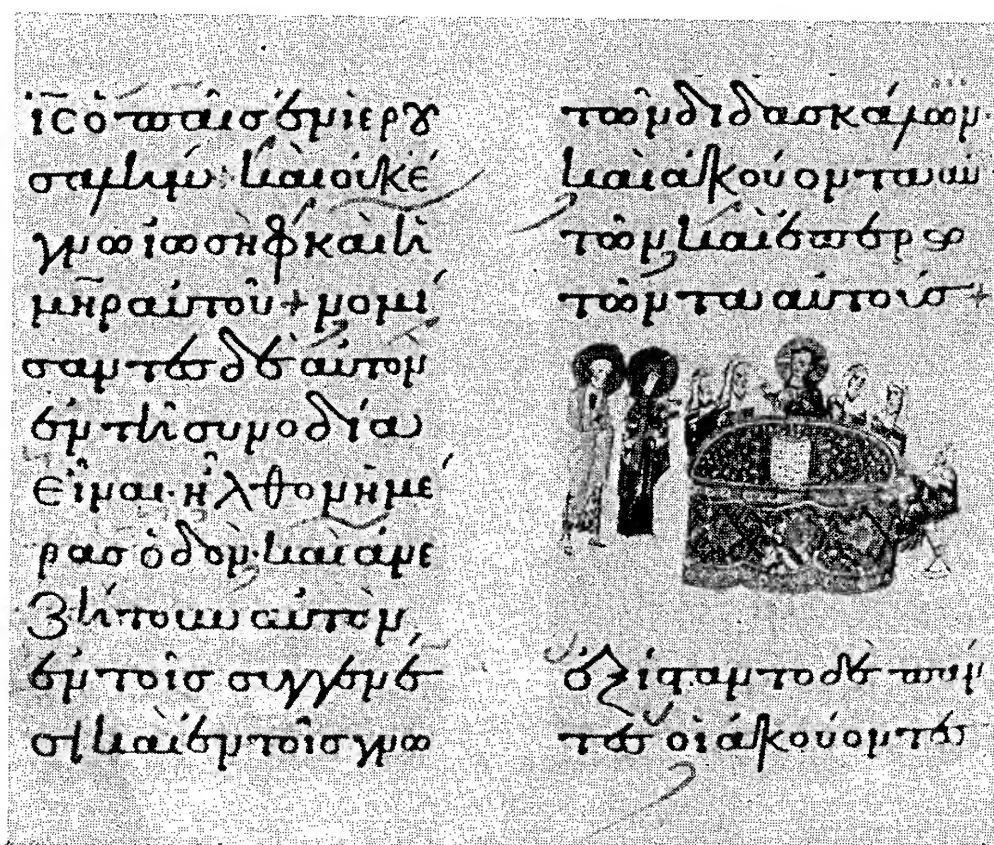 ις̅ ὁ παῖς ἐν ἱερου
σαλήμ· καὶ οὐκ ἔ
γνω ἰωσὴφ καὶ ἡ
μη̅ρ αὐτοῦ + νομί
σαντες δὲ αὐτον
ἐν τῆ συνοδία
εἶναι· ἦλθον ἡμέ
ρας ὁδὸν· καὶ ἀνε
ζήτουν αὐτὸν
ἐν τοῖς συγγενέ
σι καὶ ἐν τοῖς γνω
τῶν διδασκάλων·
καὶ ἀκούοντα αὐ
τῶν καὶ ἐπερω
τῶντα αὐτούς +
ἐξίσταντο δὲ πάν
τες οἱ ἀκούοντες